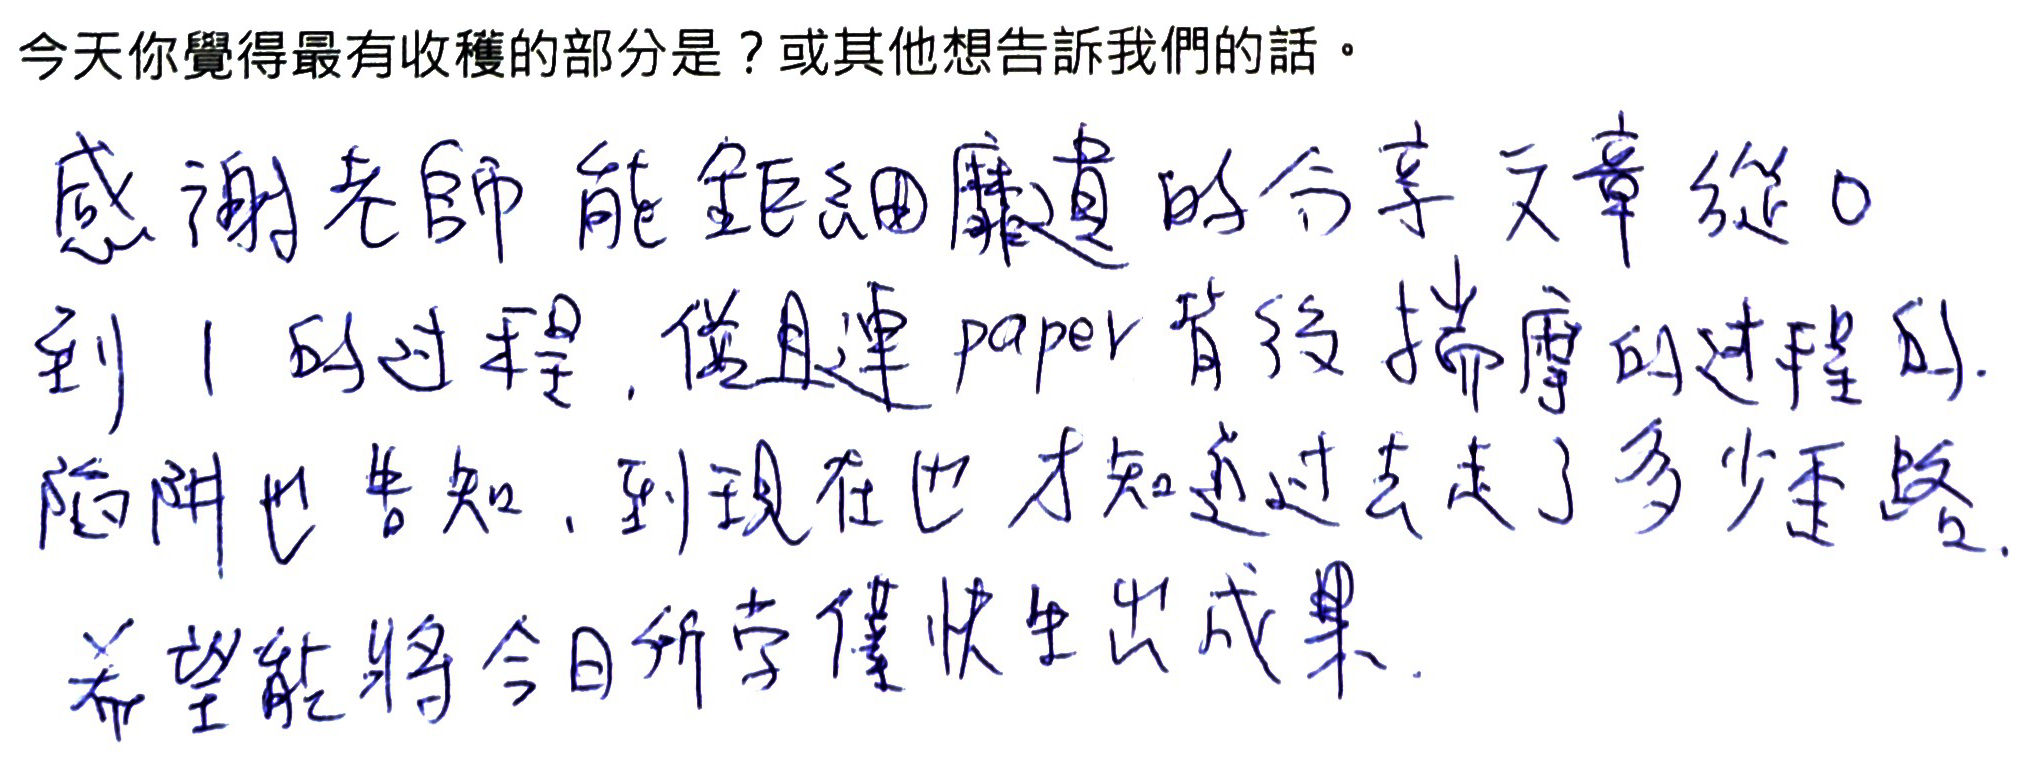 今天你覺得最有收穫的部分是？或其他想告訴我們的話。
感謝老師能鉅細靡遺的分享文章從0
到1的过程，儘且連paper背後揣摩的过程的.
陷阱也告知、到現在也才知道过去走了多少歪路.
希望能將今日所学僅快生出成果.